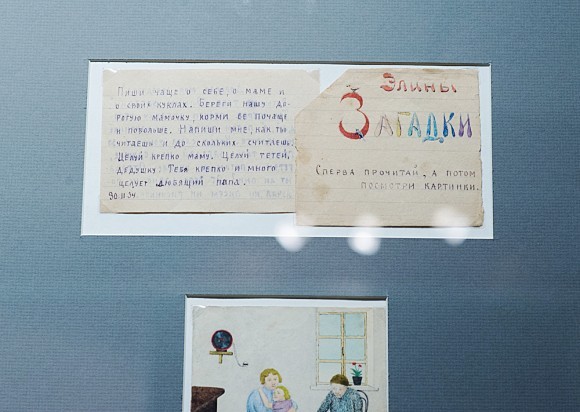 Пиши чаще о себе, о маме и
о своих куклах. Береги нашу до-
рогую мамачку, корми ее почаще
и побольше. Напиши мне, как ты
считаешь и до скольких считаешь.
Целуй крепко маму. Целуй тетей,
дедушку. Тебя крепко и много
целует любящий папа.
30.11.34.
Элины
Загадки
Сперва прочитай, а потом
посмотри картинки.